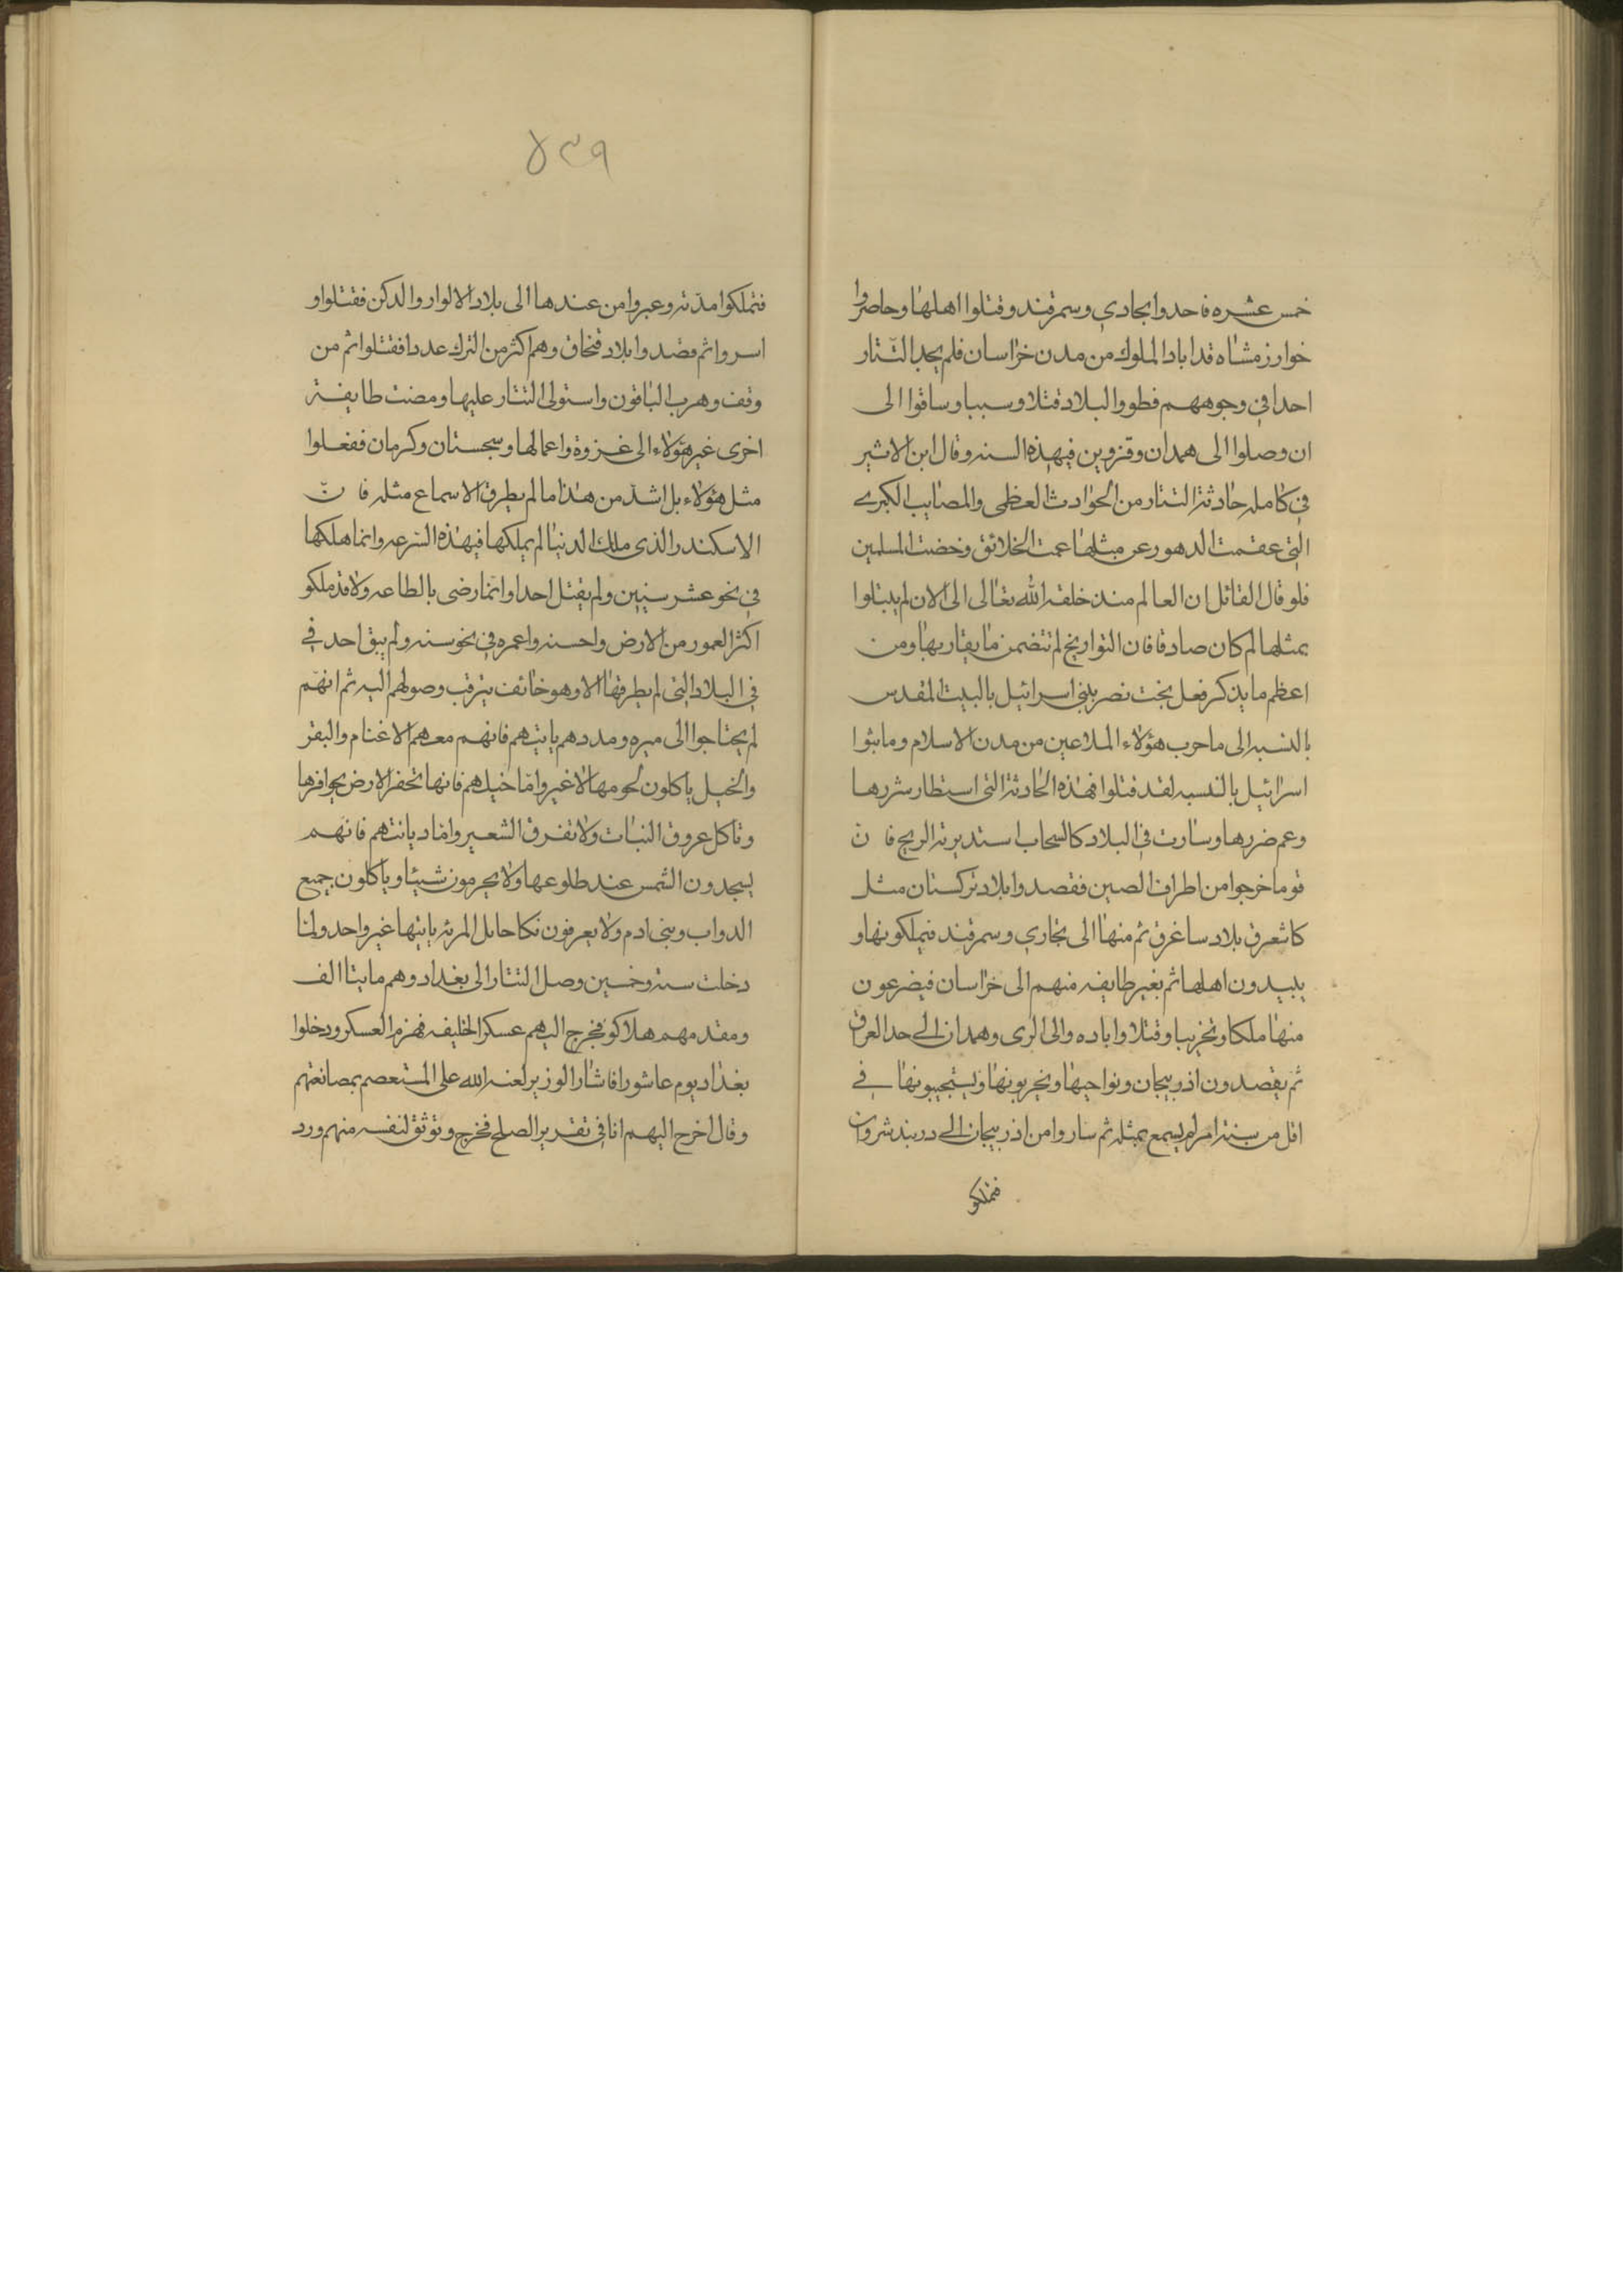 خمس عشره فاحدوا بجادي وسمرقند وقتلوا اهلها وحاصروا
خوارزمشاه قد اباد الملوك من مدن خراسان فلم يجد التتار
احدا في وجوههم فطووا البلاد قتلا وسبيا وساقوا الى
ان وصلوا الى همدان وقزوين فيهذه السنه وقال ابن الاثير
في كامله حادثة التتار من الحوادث العظمى والمصايب الكبرى
التي عقمت الدهور عن مثلها عمت الخلائق وخضت المسلمين
فلو قال القائل ان العالم منذ خلقه الله تعالى الى الان لم يبتلوا
بمثلها لم كان صادقا فان التواريخ لم تتضمن ما يقاربها ومن
اعظم ما يذكر فعل بخت نصر ببني اسرائيل بالبيت المقدس
بالنسبه الى ما حرب هؤلاء الملاعين من مدن الاسلام وما بثوا
اسرائيل بالنسبه لقد قتلوا فهذه الحادثة التي استطار شررها
وعم ضررها وسارت في البلاد كالسحاب استدبرته الريح فان
قوما خرجوا من اطراف الصين فقصدوا بلاد تركستان مثل
كاشعرق بلاد ساغرق ثم منها الى بخاري وسمرقند فيملكونها و
يبيدون اهلها ثم بغير طايفه منهم الى خراسان فيضرعون
منها ملكا وتخريبا وقتلا واباده والى الرى وهمدان الى حد العراق
ثم يقصدون اذربيجان ونواحيها ويخربونها ويستجيبونها في
اقل من سنة امر لم يسمع بمثله ثم ساروا من اذربيجان الى دربند شروان
فتملكو
٨٣٩
فتملكوا مدنه وعبروا من عندها الى بلاد الالوار والدكن فقتلوا و
اسروا ثم قصدوا بلاد قنجاق وهم اكثر من الترك عددا فقتلوا ثم من
وقف وهرب الباقون واستولى التتار عليها ومضت طايفة
اخرى غير هؤلاء الى غزوة واعمالها وسجستان وكرمان ففعلوا
مثل هؤلاء بل اشد من هذا ما لم يطرق الاسماع مثله فان
الاسكندر الذى ملك الدنيا لم يملكها فيهذه السرعه وانما هلكها
في نحو عشر سنين ولم يقتل احدا وانما رضى بالطاعه ولا قد ملكو
اكثر العمور من الارض واحسنه واعمره في نحو سنه ولم يبق احد في
في البلاد التي لم يطرقها الا وهو خائف يترقب وصولهم اليه ثم انهم
لم يحتاجوا الى ميره ومددهم ياتيهم فانهم معهم الاغنام والبقر
والخيل ياكلون لحومها لا غير واما خيلهم فانها تحفر الارض بحوافرها
وتاكل عروق النبات ولا تفرق الشعير واما ديانتهم فانهم
يسجدون الشمس عند طلوعها ولا يحرمون شيئا وياكلون جميع
الدواب وبني ادم ولا يعرفون نكاحا بل المرئة ياتيها غير واحد ولما
دخلت سنة وخمسين وصل التتار الى بغداد وهم مايتا الف
ومقدمهم هلاكو فخرج اليهم عسكر الخليفه فهزم العسكر ودخلوا
بغداد يوم عاشورا فاشار الوزير لعنه الله على المستعصم بمصانعتهم
وقال اخرج اليهم انا في تقدير الصلح فخرج وتوثق لنفسه منهم ورد